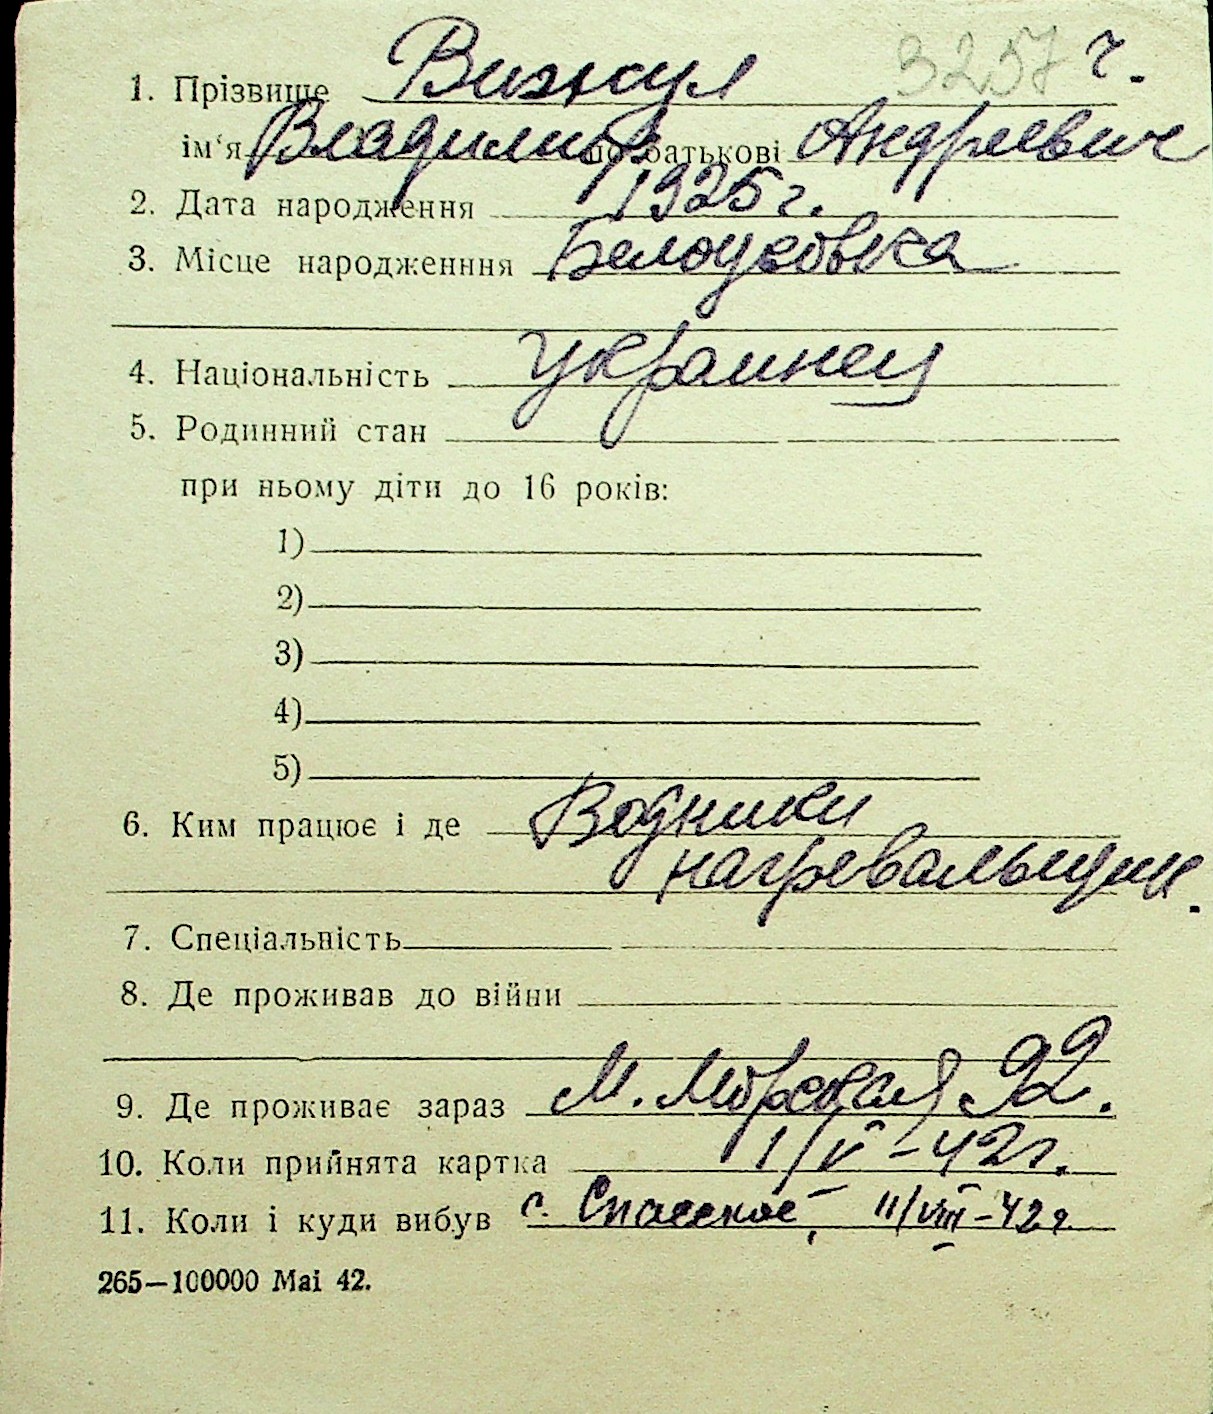 3257 г.
1. Прізвище Вижул
ім‘я Владимир по батькові Андреевич
2. Дата народження 1925 г.
3. Місце народженння Белоусовка
4. Національність украинец
5. Родинний стан
при ньому діти до 16 років:
1)
2)
3)
4)
5)
6. Ким працює і де Водники
нагревальщик.
7. Спеціальність
8. Де проживав до війни
9. Де проживає зараз М. Морская 92.
10. Коли прийнята картка 1/V-42г.
11. Коли і куди вибув с. Спасское, 11/VIII-42г
265—100000 Mai 42.